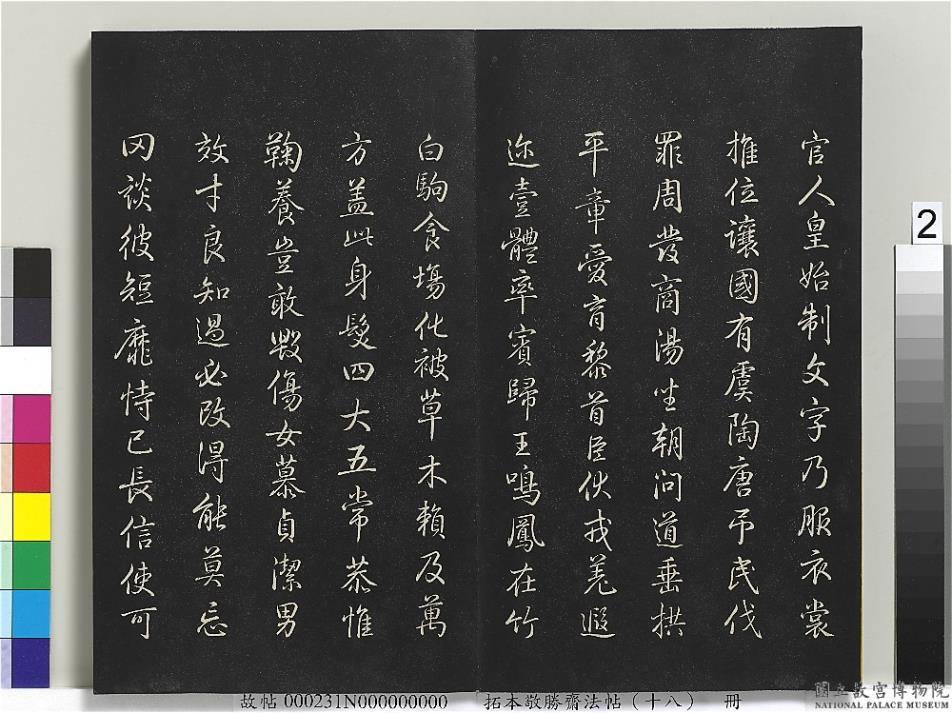 官人皇始制文字乃服衣裳
推位讓國有虞陶唐弔民伐
罪周發商湯坐朝问道垂拱
平章愛育黎首臣伏戎羌遐
迩壹體率賓歸王鳴鳳在竹
白駒食場化被草木賴及萬
方盖此身髮四大五常恭惟
鞠養豈敢毀傷女慕貞潔男
效才良知過必改得能莫忘
罔談彼短靡恃己長信使可
2
故帖 000231N000000000 拓本敬勝齋法帖（十八） 冊
國立故宮博物院
NATIONAL PALACE MUSEUM